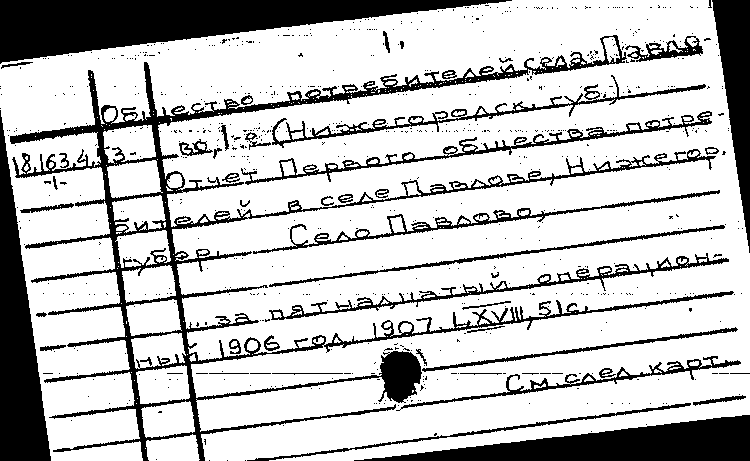 1.
Общество потребителей села Павло-
во, 1-е (Нижегородск. губ.)
18.163.4.53-
-1-
Отчет Первого общества потре-
бителей в селе Павлове, Нижегор.
губер. Село Павлово,
...за пятнадцатый операцион-
ный 1906 год. 1907. LXVIII, 51с.
См. след. карт.